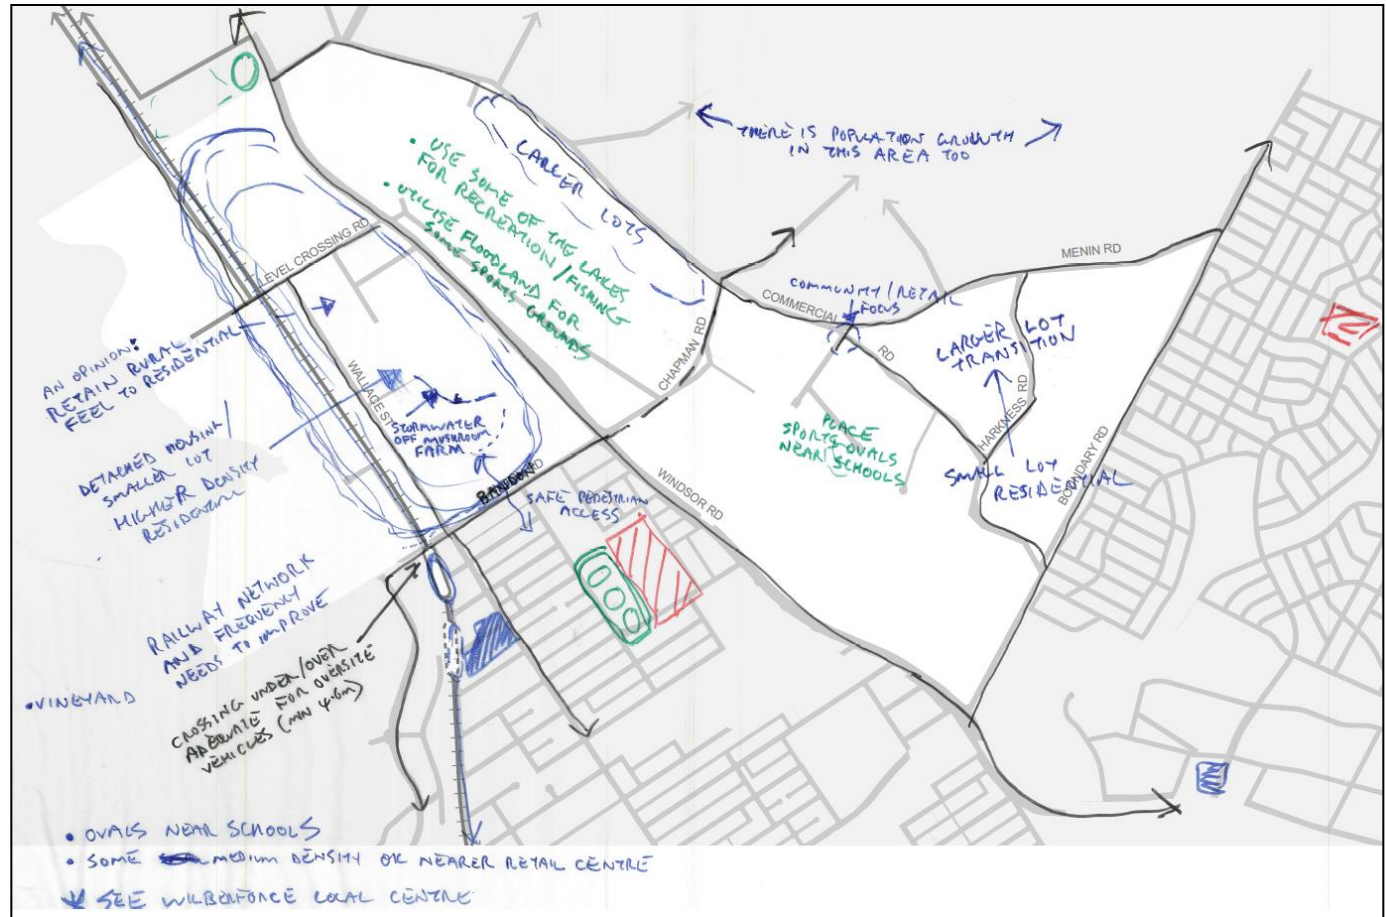 THERE IS POPULATION GROWTH
IN THIS AREA TOO
LARGER LOTS
• USE SOME OF THE LAKES
FOR RECREATION/FISHING
• UTILISE FLOODLAND FOR
SOME SPORTS GROUNDS
LEVEL CROSSING RD
MENIN RD
COMMUNITY/RETAIL
FOCUS
COMMERCIAL
RD
CHAPMAN RD
LARGER LOT
TRANSITION
HARKNESS RD
BOUNDARY RD
SMALL LOT
RESIDENTIAL
PLACE
SPORTS OVALS
NEAR SCHOOLS
AN OPINION:
RETAIN RURAL
FEEL TO RESIDENTIAL
WALLACE ST
STORMWATER
OFF MUSHROOM
FARM
DETACHED HOUSING/
SMALLER LOT
HIGHER DENSITY
RESIDENTIAL
BANDON RD
WINDSOR RD
SAFE PEDESTRIAN
ACCESS
RAILWAY NETWORK
AND FREQUENCY
NEEDS TO IMPROVE
• VINEYARD
CROSSING UNDER/OVER
ADEQUATE FOR OVERSIZE
VEHICLES (MIN 4.6m)
• OVALS NEAR SCHOOLS
• SOME MEDIUM DENSITY OK NEARER RETAIL CENTRE
SEE WILBERFORCE LOCAL CENTRE